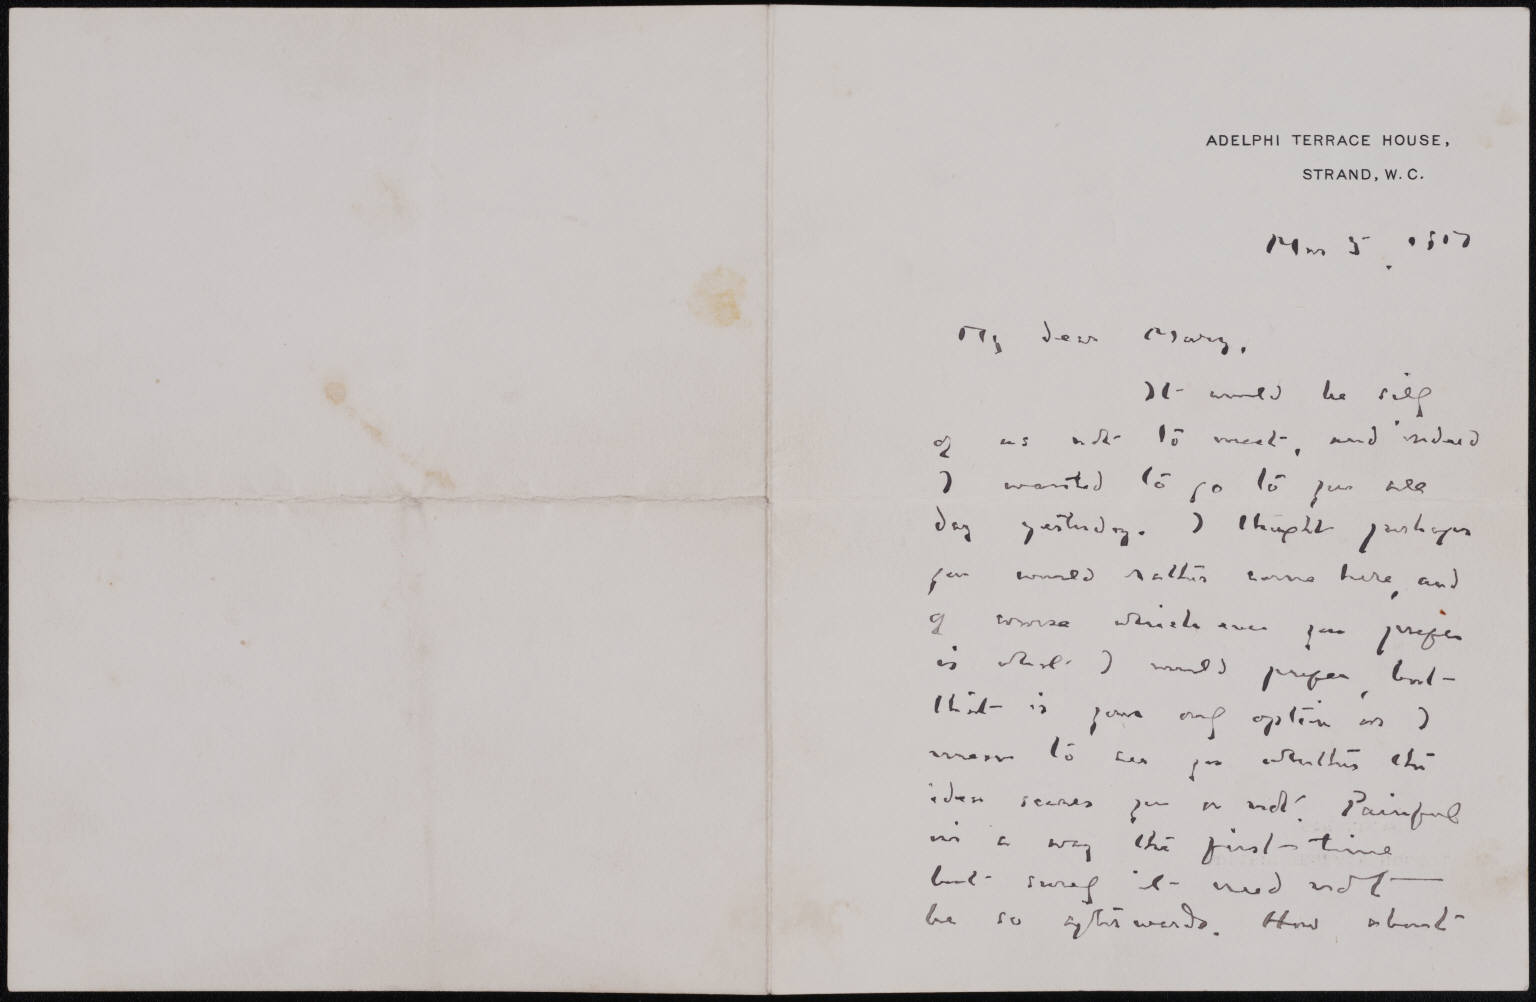 ADELPHI TERRACE HOUSE,
STRAND, W. C.
Mar 5. 1917
My dear Mary,
It would be silly
of us not to meet, and indeed
I wanted to go to you all
day yesterday. I thought perhaps
you would rather come here, and
of course which ever you prefer
is what I would prefer, but
that is your only option as I
mean to see you whether the
idea scares you or not. Painful
in a way the first time
but surely it need not
be so afterwards. How about